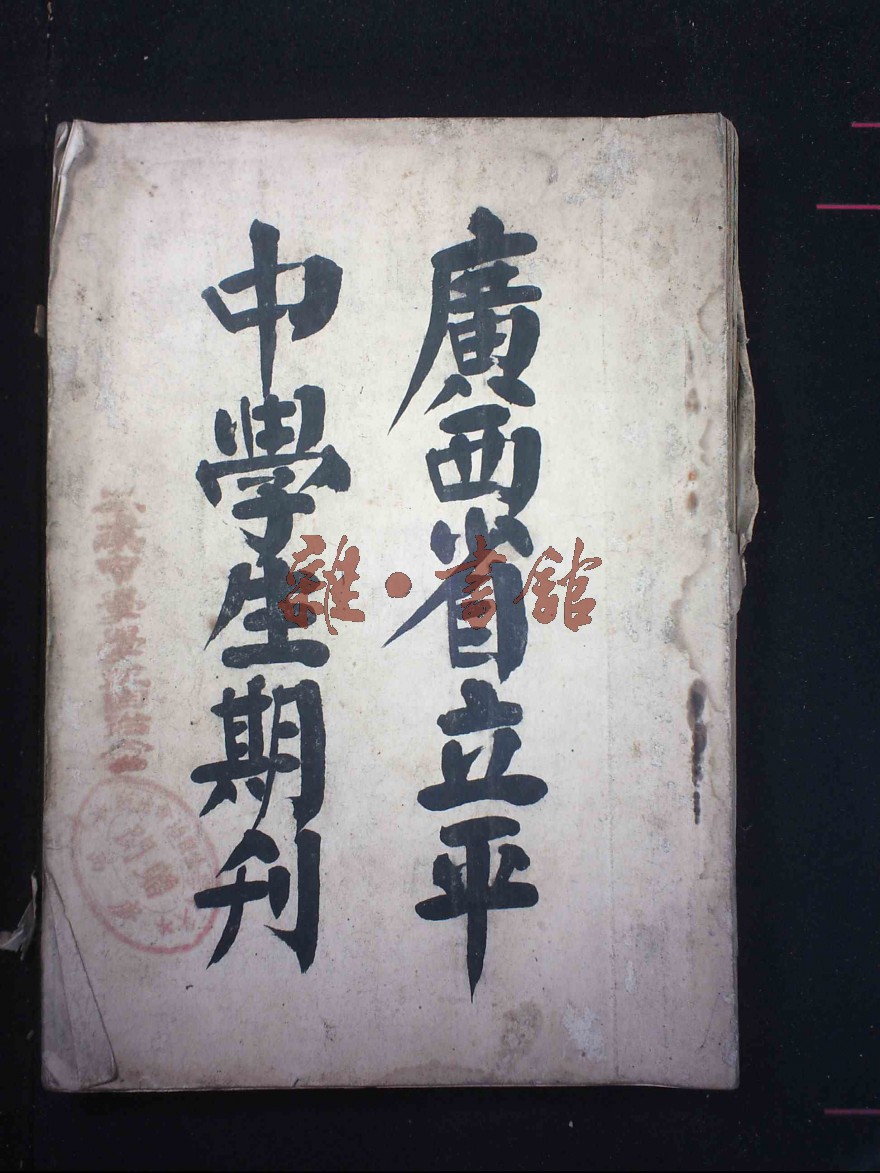 廣西省立平
中學生期刊
雜·書館